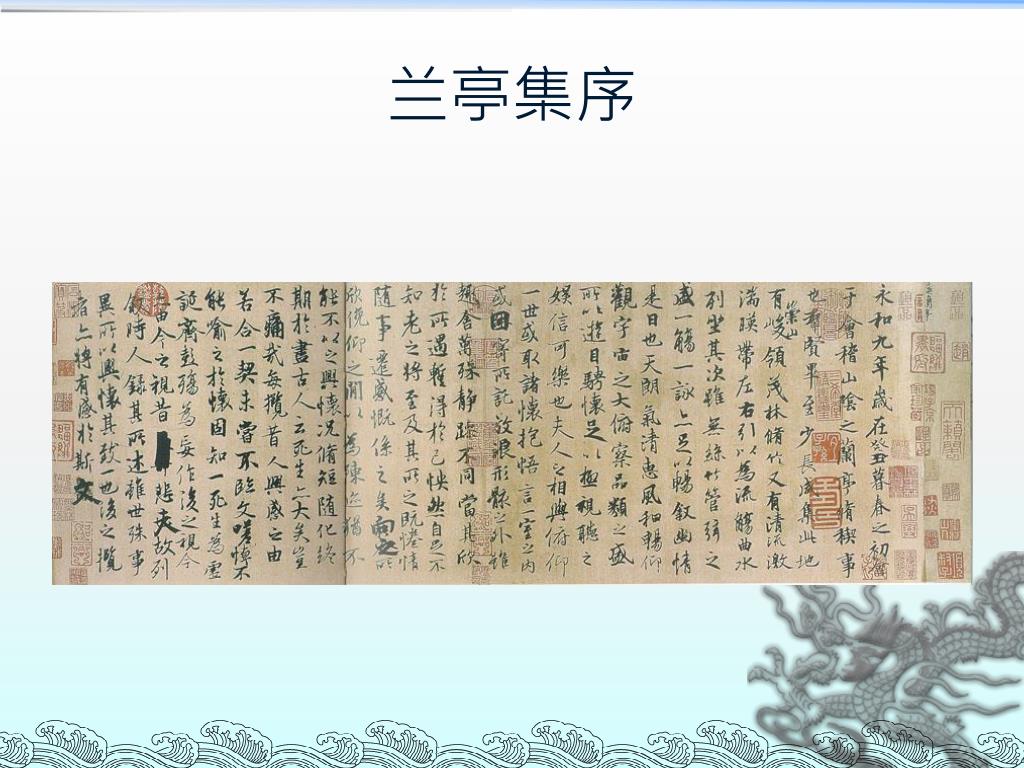 兰亭集序
永和九年歲在癸丑暮春之初會
于會稽山陰之蘭亭脩稧事
也羣賢畢至少長咸集此地
有崇山峻領茂林脩竹又有清流激
湍暎帶左右引以為流觴曲水
列坐其次雖無絲竹管弦之
盛一觴一詠亦足以暢叙幽情
是日也天朗氣清惠風和暢仰
觀宇宙之大俯察品類之盛
所以遊目騁懷足以極視聽之
娛信可樂也夫人之相與俯仰
一世或取諸懷抱悟言一室之內
或因寄所託放浪形骸之外雖
趣舍萬殊静躁不同當其欣
於所遇暫得於己怏然自足不
知老之將至及其所之既惓情
隨事遷感慨係之矣向之所
欣俛仰之間以為陳迹猶不
能不以之興懷況脩短隨化終
期於盡古人云死生亦大矣豈
不痛哉每攬昔人興感之由
若合一契未嘗不臨文嗟悼不
能喻之於懷固知一死生為虛
誕齊彭殤為妄作後之視今
亦由今之視昔悲夫故列
叙時人錄其所述雖世殊事
異所以興懷其致一也後之攬
者亦將有感於斯文